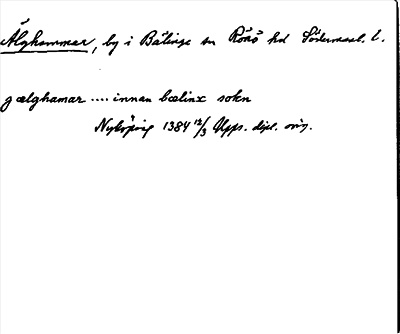 Älghammar, by i Bälinge sn Rönö hd Södermanl. l.
gælghamar .... innan bælinx sokn
Nyköping 1384 12/3 Upps. dipl. orig.